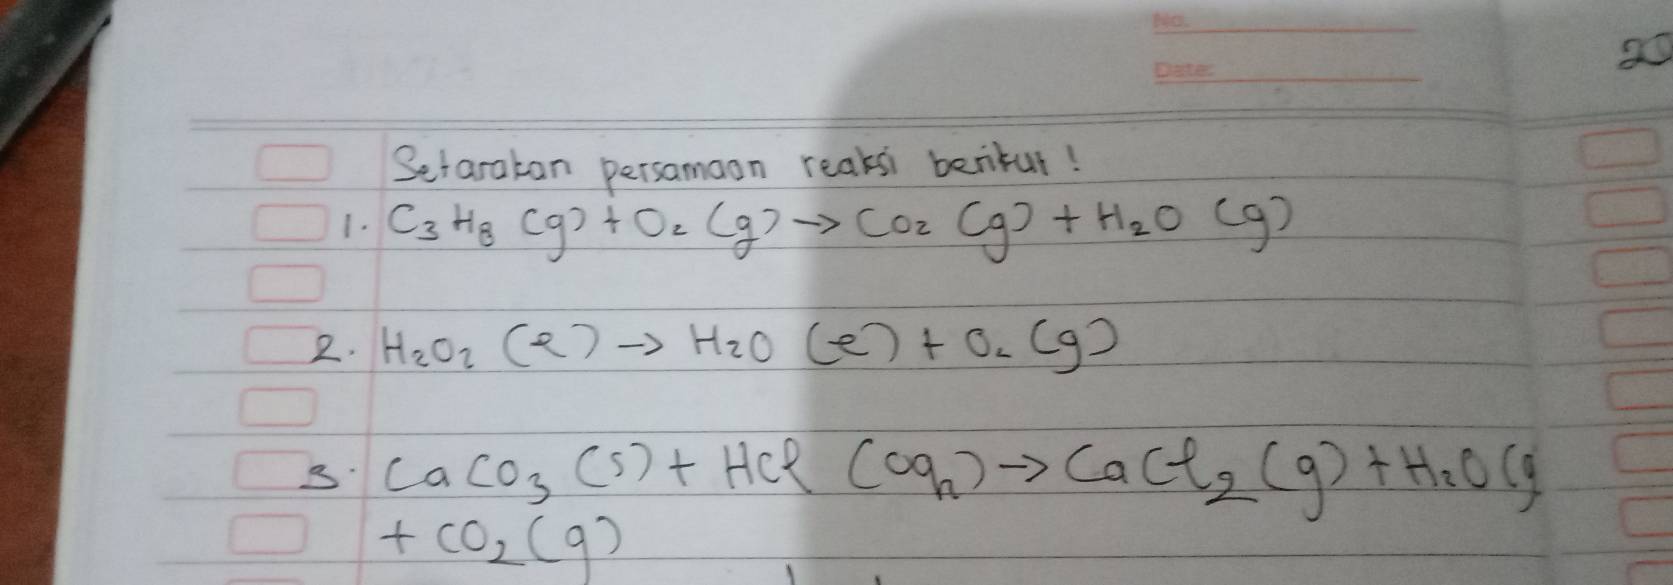 No.
Date:
20
Setarakan persamaan reaksi berikut!
1. C₃H₈ (g) + O₂ (g) → CO₂ (g) + H₂O (g)
2. H₂O₂ (l) → H₂O (l) + O₂ (g)
3. CaCO₃ (s) + HCl (aq) → CaCl₂ (g) + H₂O (g
+ CO₂ (g)